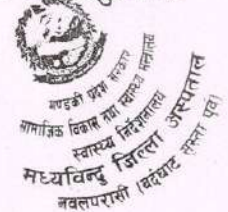 गण्डकी प्रदेश सरकार
सामाजिक विकास तथा स्वास्थ्य मन्त्रालय
स्वास्थ्य निर्देशनालय
मध्यविन्दु जिल्ला अस्पताल
नवलपरासी (बर्दघाट सुस्ता पूर्व)